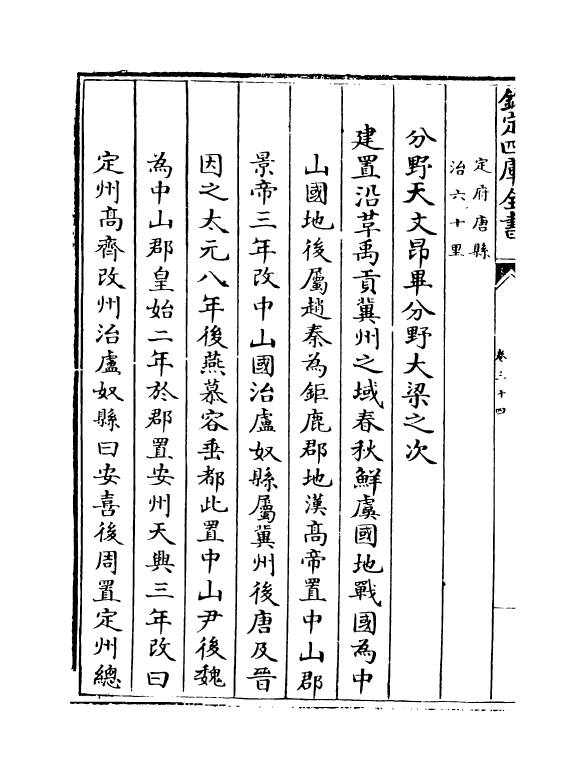 欽定四庫全書
卷三十四
定府唐縣
治六十里
分野天文昂畢分野大梁之次
建置沿革禹貢冀州之域春秋鮮虞國地戰國為中
山國地後屬趙秦為鉅鹿郡地漢髙帝置中山郡
景帝三年改中山國治盧奴縣屬冀州後唐及晉
因之太元八年後燕慕容垂都此置中山尹後魏
為中山郡皇始二年於郡置安州天興三年改曰
定州髙齊改州治盧奴縣曰安喜後周置定州總